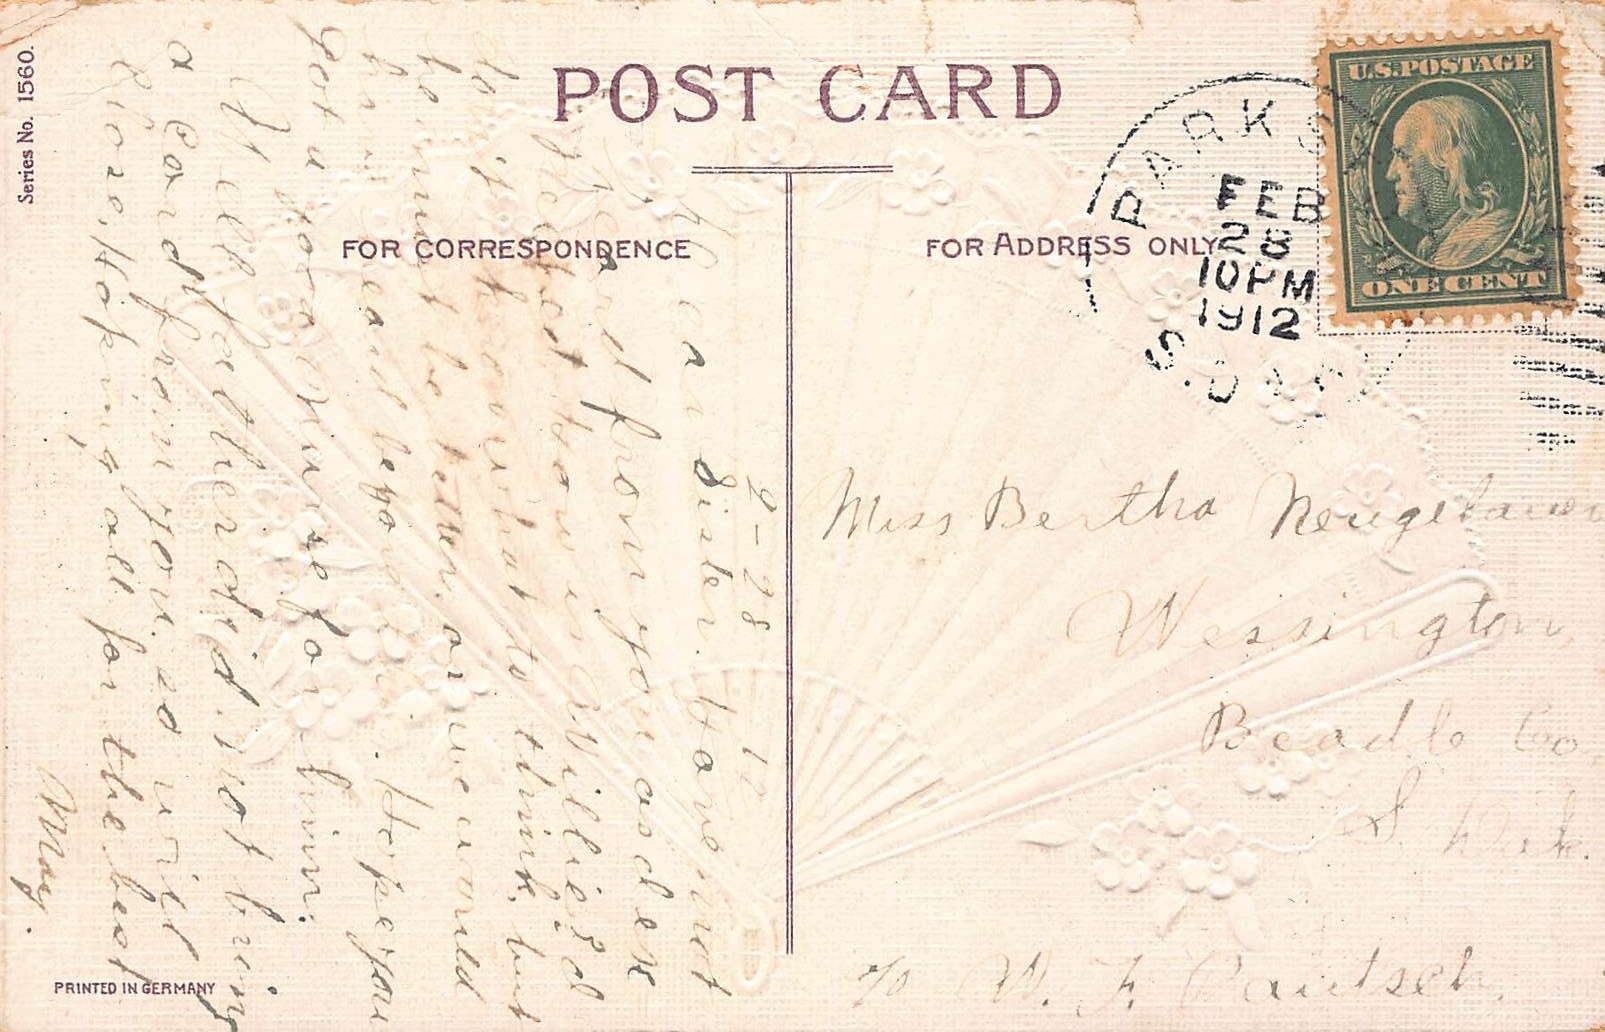 Series No. 1560.
POST CARD
FOR CORRESPONDENCE
FOR ADDRESS ONLY
U.S. POSTAGE
ONE CENT
PARKS
FEB
28
10PM
1912
S. DAK
2-28 12
Dear Sister. Have not
heard from you as dex
pected. How is Willie? I
do not know what to think, but
he must be better, or we would
have heard before this. Hope you
got a good nurse for him.
Well father did not bring
a Card from you, so will
Close, Hoping all for the best
May.
Miss Bertha
Wessington,
Beadle Co
S. Dak.
c/o W. F. Pautsch.
PRINTED IN GERMANY